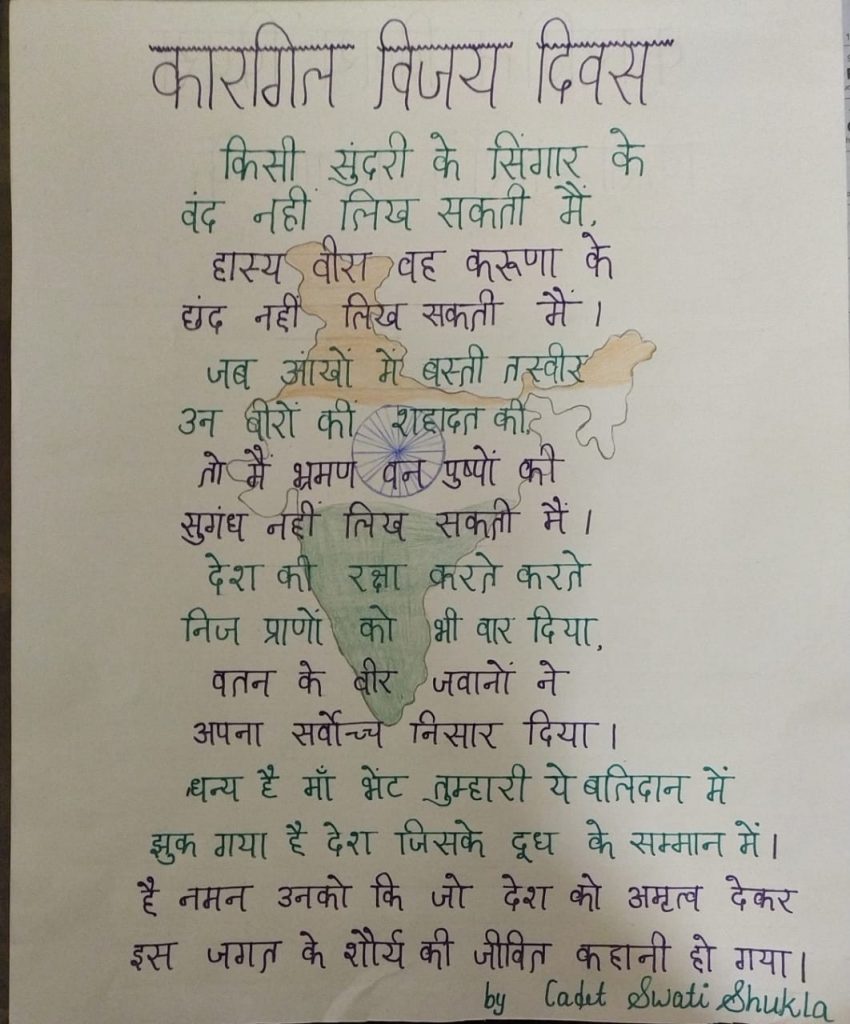 कारगिल विजय दिवस
किसी सुंदरी के सिंगार के
वंद नहीं लिख सकती मैं,
हास्य वीस वह करूणा के
छंद नहीं लिख सकती मैं ।
जब आंखों में बस्ती तस्वीर
उन बीरों कीं शहादत की,
तो मैं भ्रमण वन पुष्पों की
सुगंध नहीं लिख सकती मैं ।
देश की रक्षा करते करते
निज प्राणों को भी वार दिया,
वतन के बीर जवानों ने
अपना सर्वोच्च निसार दिया ।
धन्य है माँ भेंट तुम्हारी ये बलिदान में
झुक गया है देश जिसके दूध के सम्मान में ।
है नमन उनको कि जो देश को अमृत्व देकर
इस जगत के शौर्य की जीवित कहानी हो गया ।
by Cadet Swati Shukla